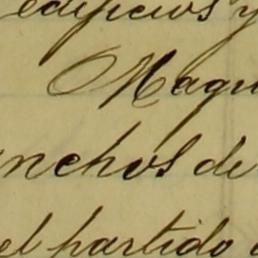 edificios y
Maqu
nchos de
el partido